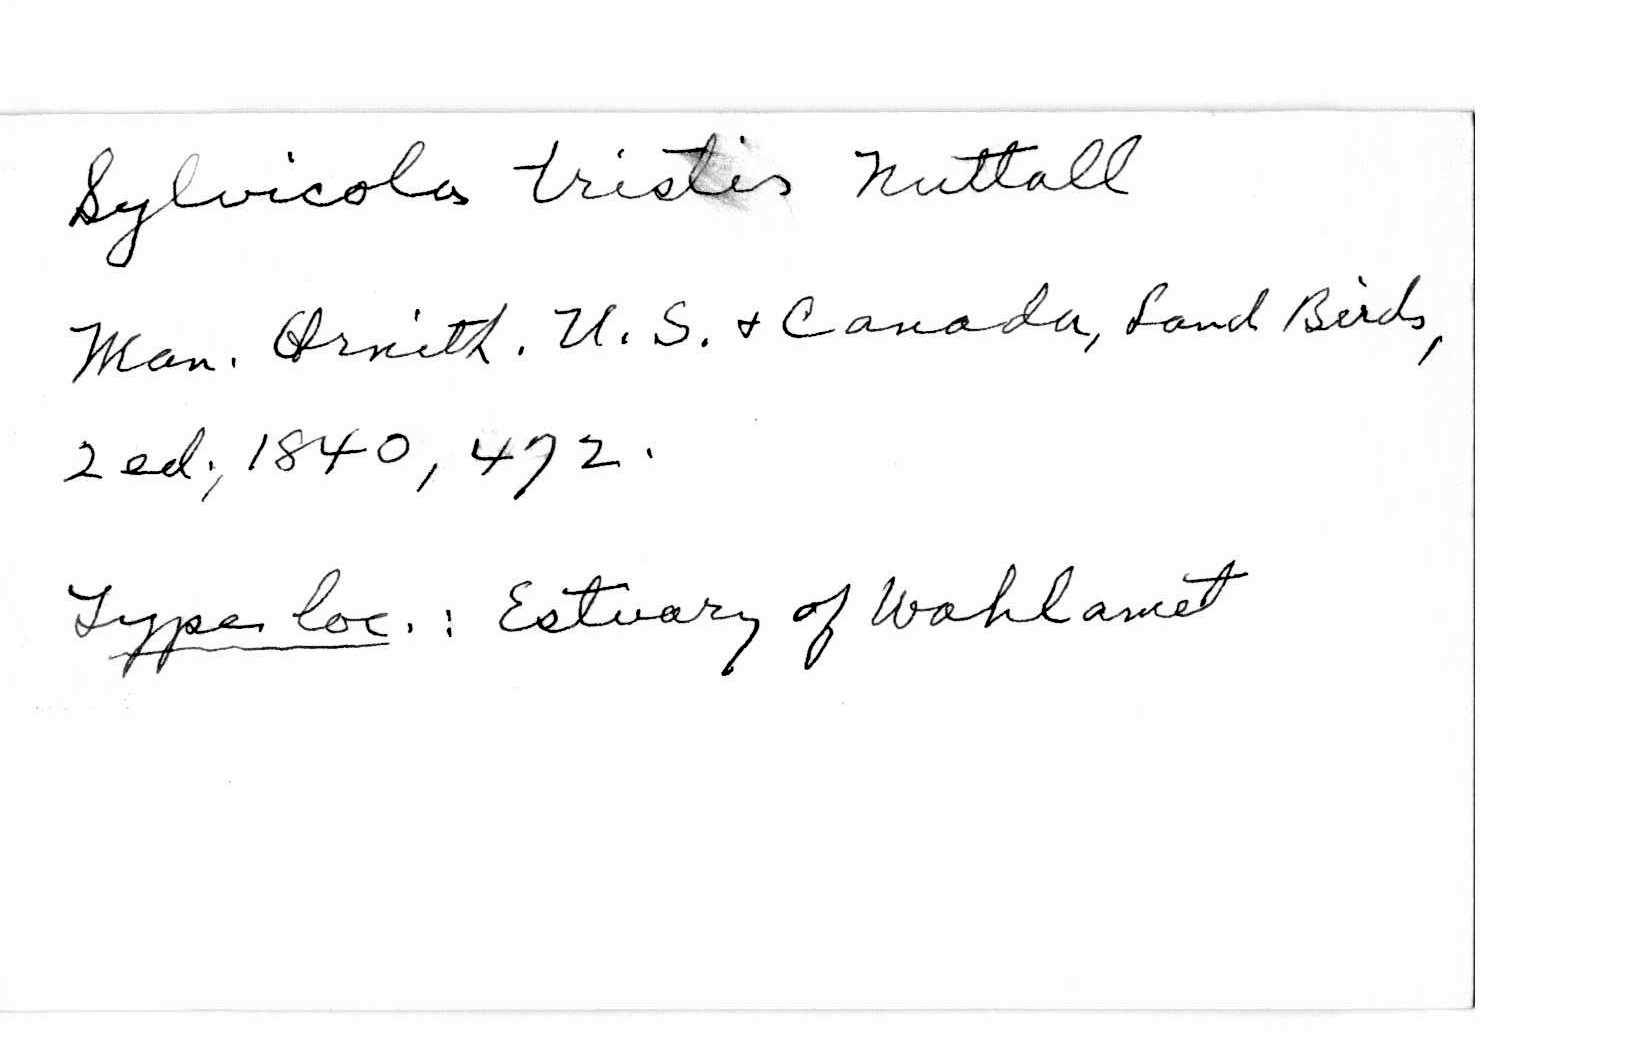 Sylvicola tristis Nuttall
Man. Ornith. U.S. + Canada, Land Birds,
2 ed., 1840, 472.
Type loc.: Estuary of Wahlamet